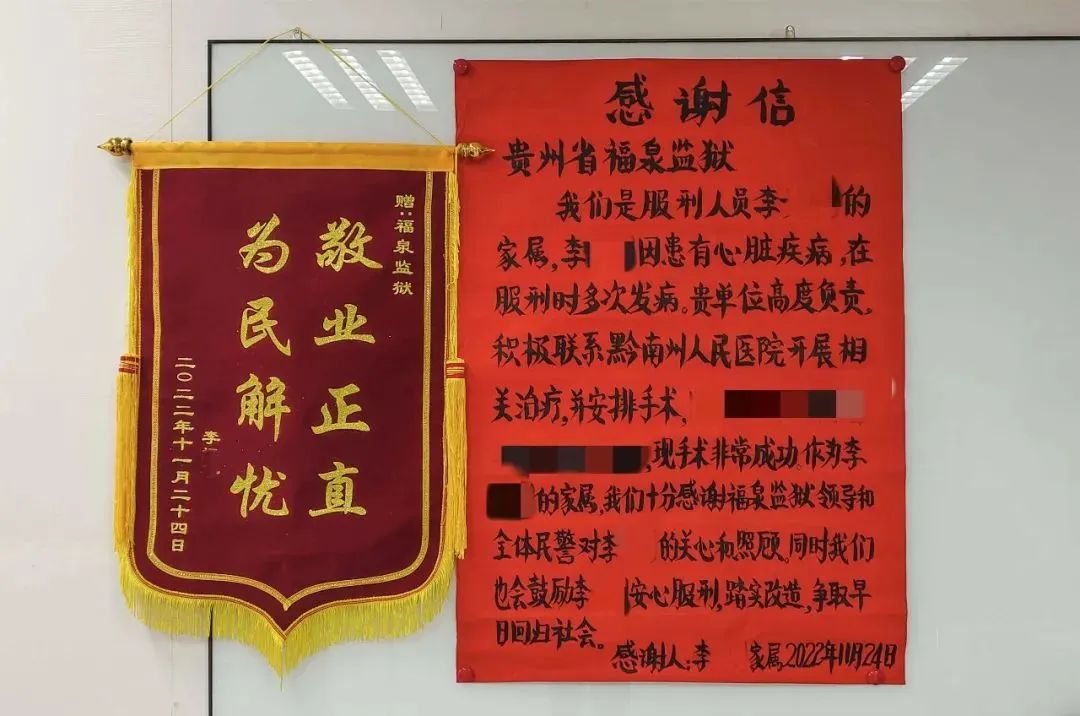 赠：福泉监狱
敬业正直
为民解忧
李
二〇二二年十一月二十四日
感谢信
贵州省福泉监狱
我们是服刑人员李 的
家属，李 因患有心脏疾病，在
服刑时多次发病。贵单位高度负责，
积极联系黔南州人民医院开展相
关治疗，并安排手术，
，现手术非常成功。作为李
的家属，我们十分感谢福泉监狱领导和
全体民警对李 的关心和照顾。同时我们
也会鼓励李 安心服刑，踏实改造，争取早
日回归社会。
感谢人：李 家属，2022年11月24日